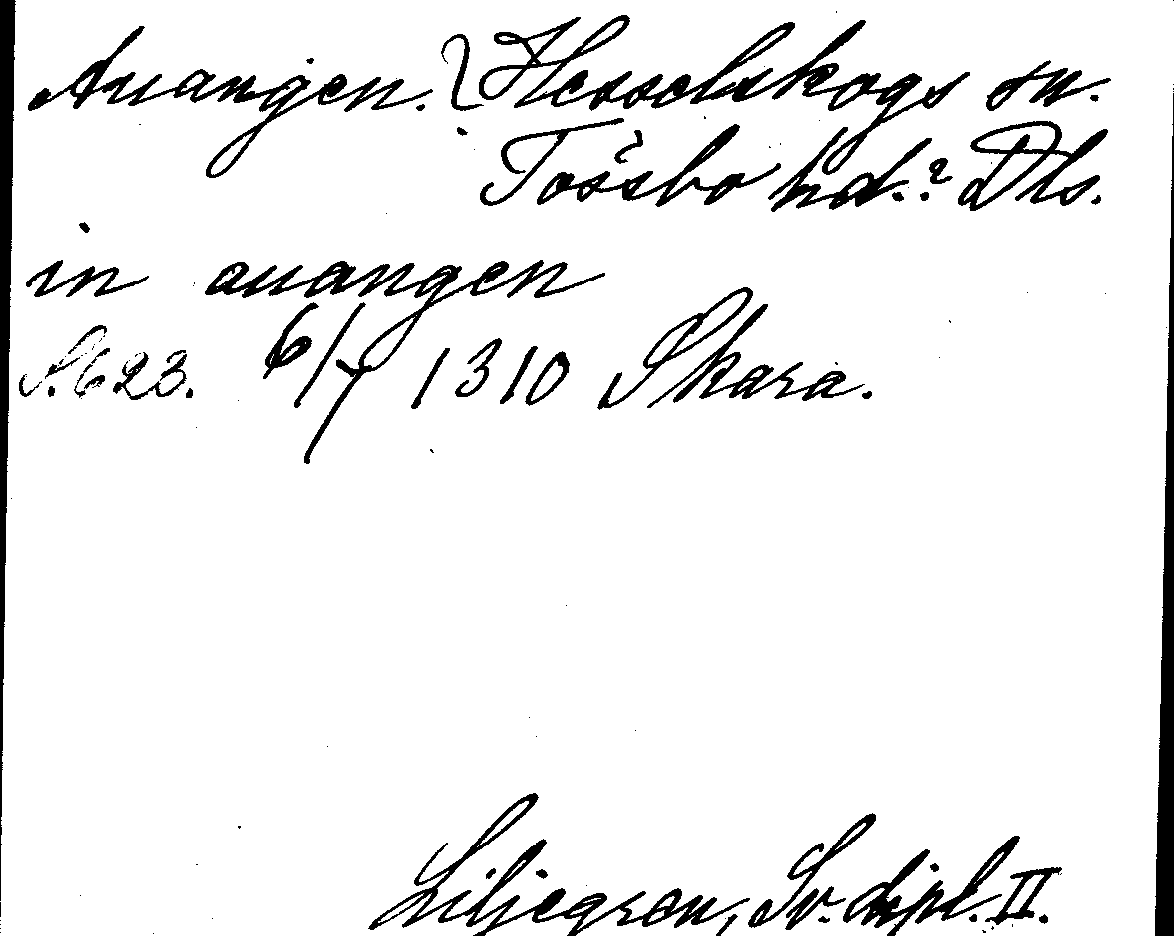 Auangen. ? Hesselskogs sn.
Tössbo hd.? Dls.
in auangen
S. 623. 6/7 1310 Skara.
Liljegren, Sv. dipl. II.